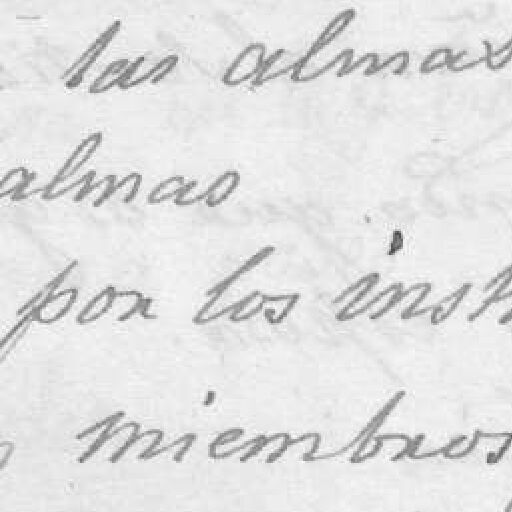 las almas
almas
por los inst
miembros